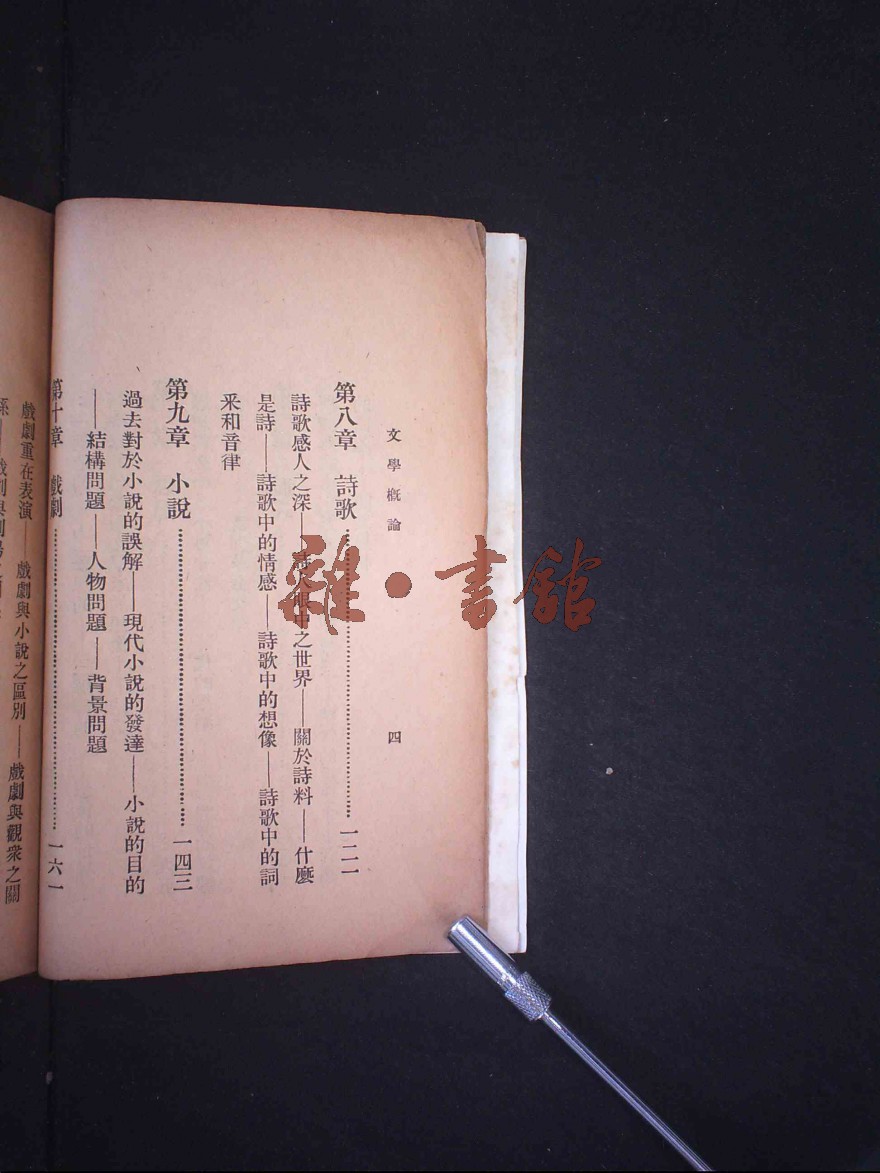 文學概論
四
第八章 詩歌⋯⋯⋯⋯⋯⋯⋯⋯⋯⋯⋯⋯一二一
詩歌感人之深——詩人眼中之世界——關於詩料——什麼
是詩——詩歌中的情感——詩歌中的想像——詩歌中的詞
釆和音律
第九章 小説⋯⋯⋯⋯⋯⋯⋯⋯⋯⋯⋯⋯一四三
過去對於小說的誤解——現代小說的發達——小說的目的
——結構問題——人物問題——背景問題
第十章 戲劇⋯⋯⋯⋯⋯⋯⋯⋯⋯⋯⋯⋯一六一
戲劇重在表演——戲劇與小說之區別——戲劇與觀衆之關
係——戲劇與劇場
雜·書館